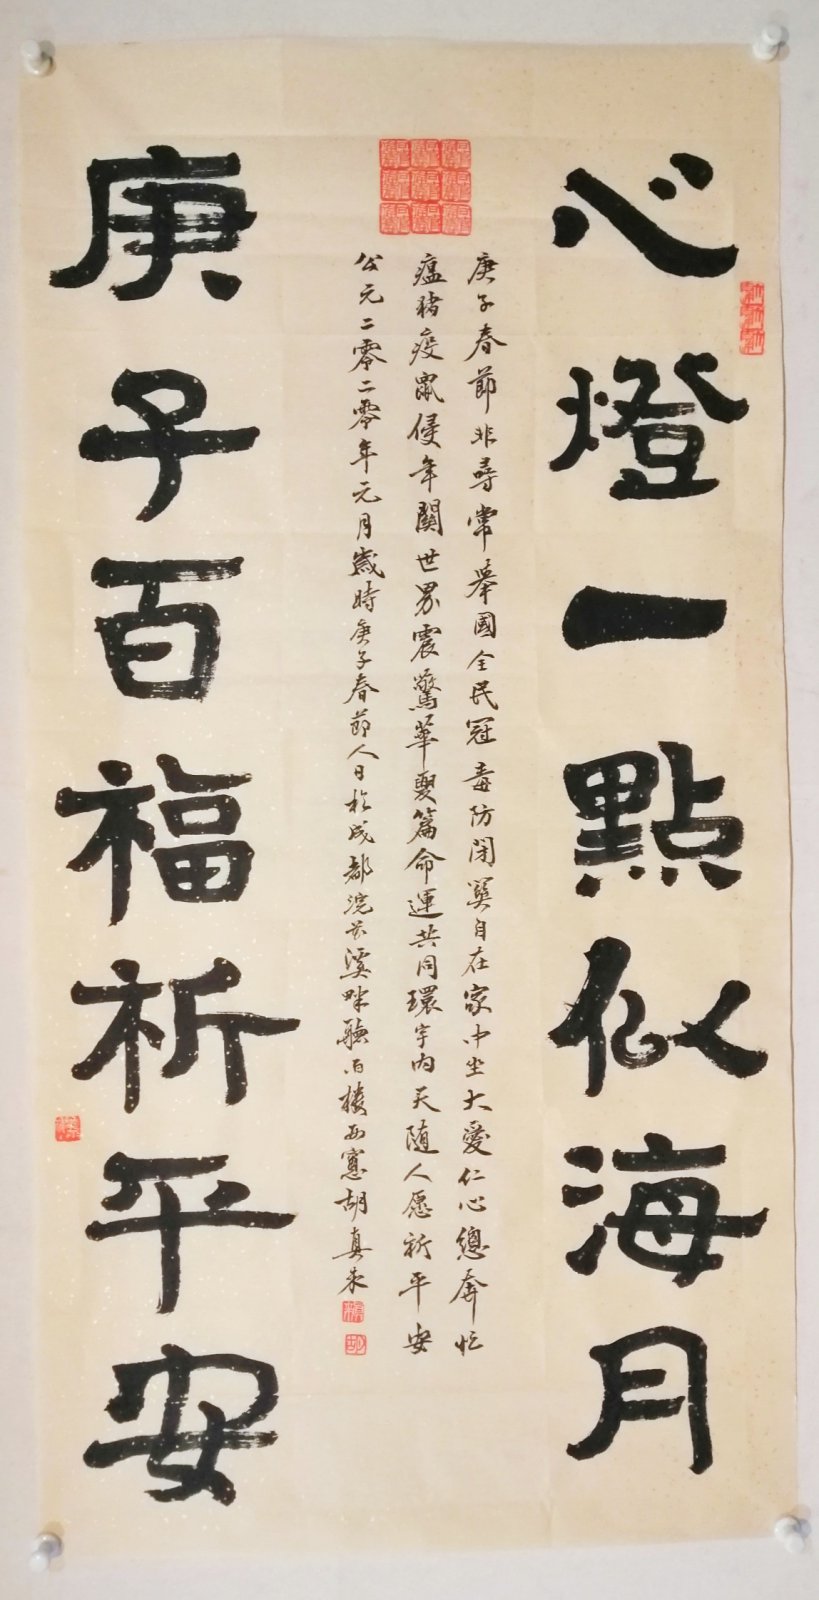 心燈一點似海月
庚子春節非尋常舉國全民冠毒防閉戶自在家中坐大愛仁心總奔忙
瘟豬疫鼠侵年關世界震驚華夏篇命運共同環宇內天隨人愿祈平安
公元二零二零年元月歲時庚子春節人日於成都浣花溪畔聽雨樓西窗胡真來
庚子百福祈平安